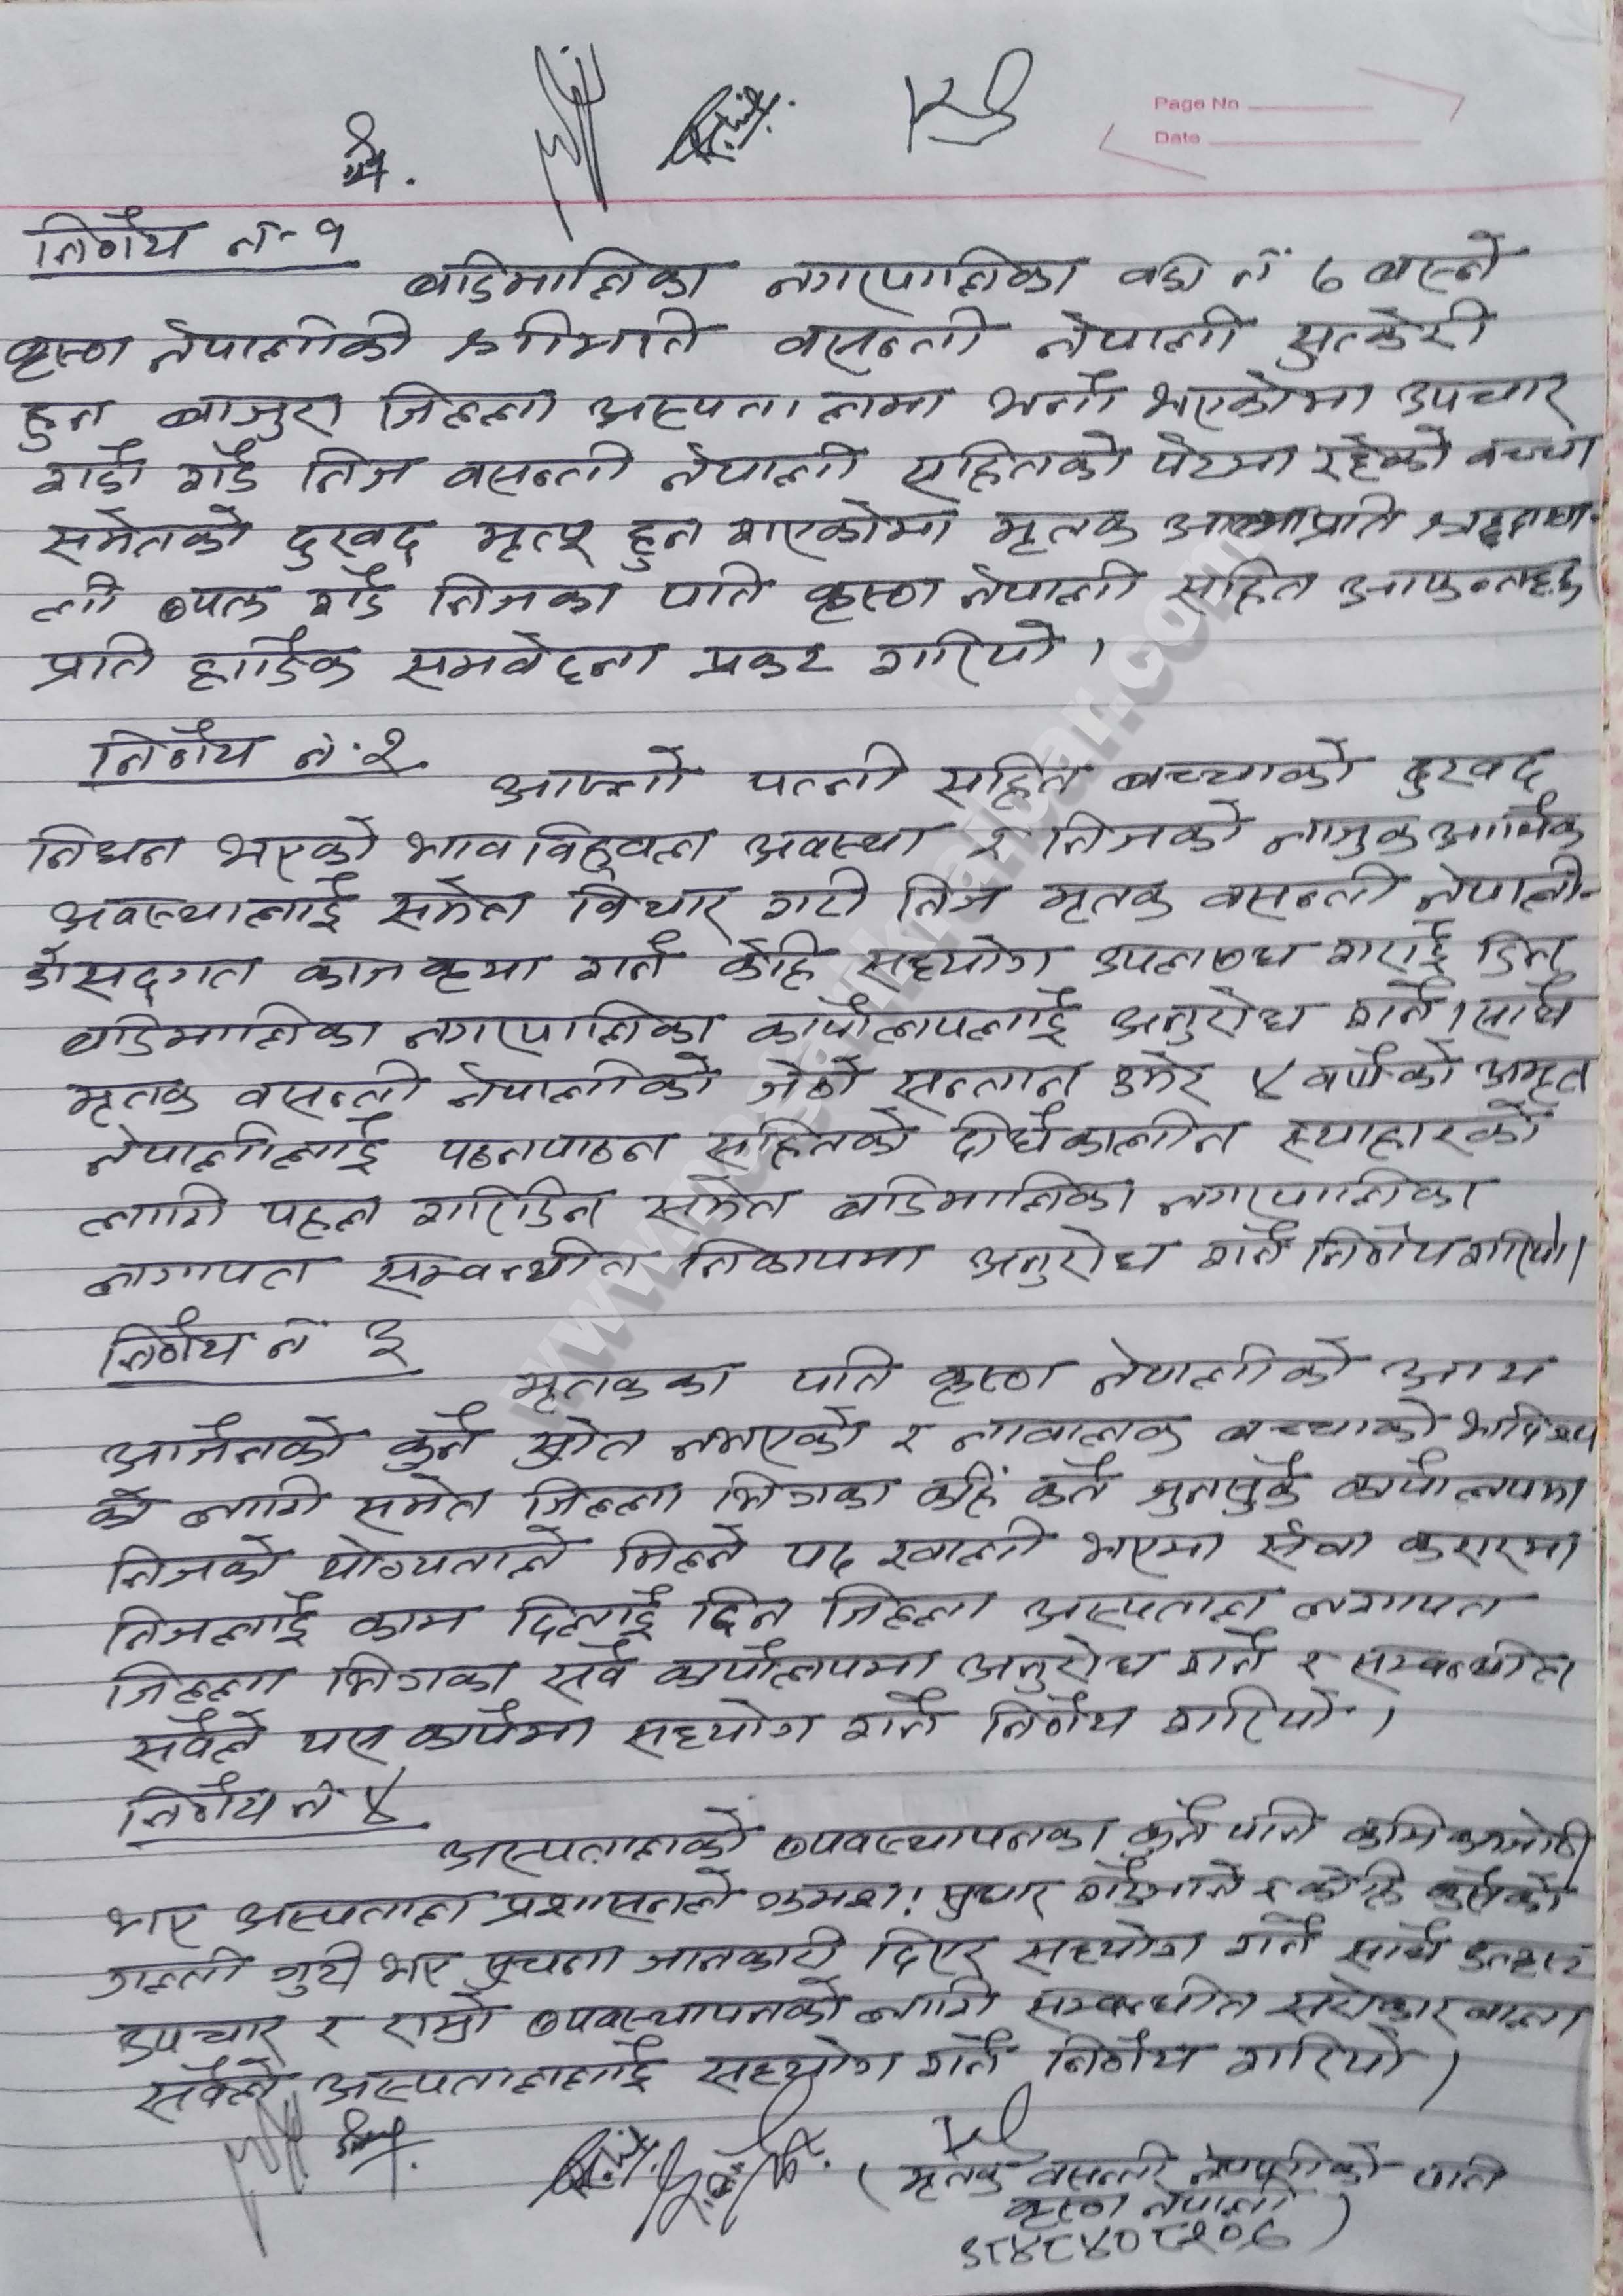 Page No
Date
निर्णय नं-१
बडिमालिका नगरपालिका वडा नं ७ बस्ने
कृष्ण नेपालीको श्रीमति वसन्ती नेपाली सुत्केरी
हुन बाजुरा जिल्ला अस्पतालमा भर्ना भएकोमा उपचार
गर्दा गर्दै निज वसन्ती नेपाली सहितको पेटमा रहेको बच्चा
समेतको दुखद मृत्यु हुन गएकोमा मृतक आत्माप्रति श्रद्धाञ्ज-
ली व्यक्त गर्दै निजका पति कृष्ण नेपाली सहित आफन्तहरु
प्रति हार्दिक समवेदना प्रकट गरियो ।
निर्णय नं. २
आफ्नो पत्नी सहित बच्चाको दुखद
निधन भएको भावविह्वल अवस्था र निजको नाजुक आर्थिक
अवस्थालाई समेत विचार गरी निज मृतक वसन्ती नेपाली-
को सद्गत काजकृया गर्न केहि सहयोग उपलब्ध गराई दिन
बडिमालिका नगरपालिका कार्यालयलाई अनुरोध गर्ने । साथै
मृतक वसन्ती नेपालीको जेठो सन्तान उमेर ४ वर्षको अमृत
नेपालीलाई पठनपाठन सहितको दीर्घकालीन स्याहारको
लागि पहल गरिदिन समेत बडिमालिका नगरपालिका
लगायत सम्वन्धीत निकायमा अनुरोध गर्ने निर्णय गरियो ।
निर्णय नं ३
मृतकका पति कृष्ण नेपालीको आय
आर्जनको कुनै स्रोत नभएको र नावालक बच्चाको भविश्य
को लागि समेत जिल्ला भित्रका कहिं कतै जुनसुकै कार्यालयमा
निजको योग्यताले मिल्ने पद खाली भएमा सेवा करारमा
निजलाई काम दिलाई दिन जिल्ला अस्पताल लगायत
जिल्ला भित्रका सवै कार्यालयमा अनुरोध गर्ने र सम्वन्धीत
सवैले यस कार्यमा सहयोग गर्ने निर्णय गरियो ।
निर्णय नं ४
अस्पतालको व्यवस्थापनका कुनै पनि कमि कमजोरी
भए अस्पताल प्रशासनले क्रमश: सुधार गर्दैजाने र कोहि कसैको
गल्ती त्रुटी भए सुचना जानकारी दिएर सहयोग गर्ने साथै
उपचार र राम्रो व्यवस्थापनको लागि सम्वन्धीत सरोकारवाला
सवैले अस्पताललाई सहयोग गर्ने निर्णय गरियो ।
( मृतक वसन्ती नेपालीको पति
कृष्ण नेपाली )
www.nepalikhabar.com